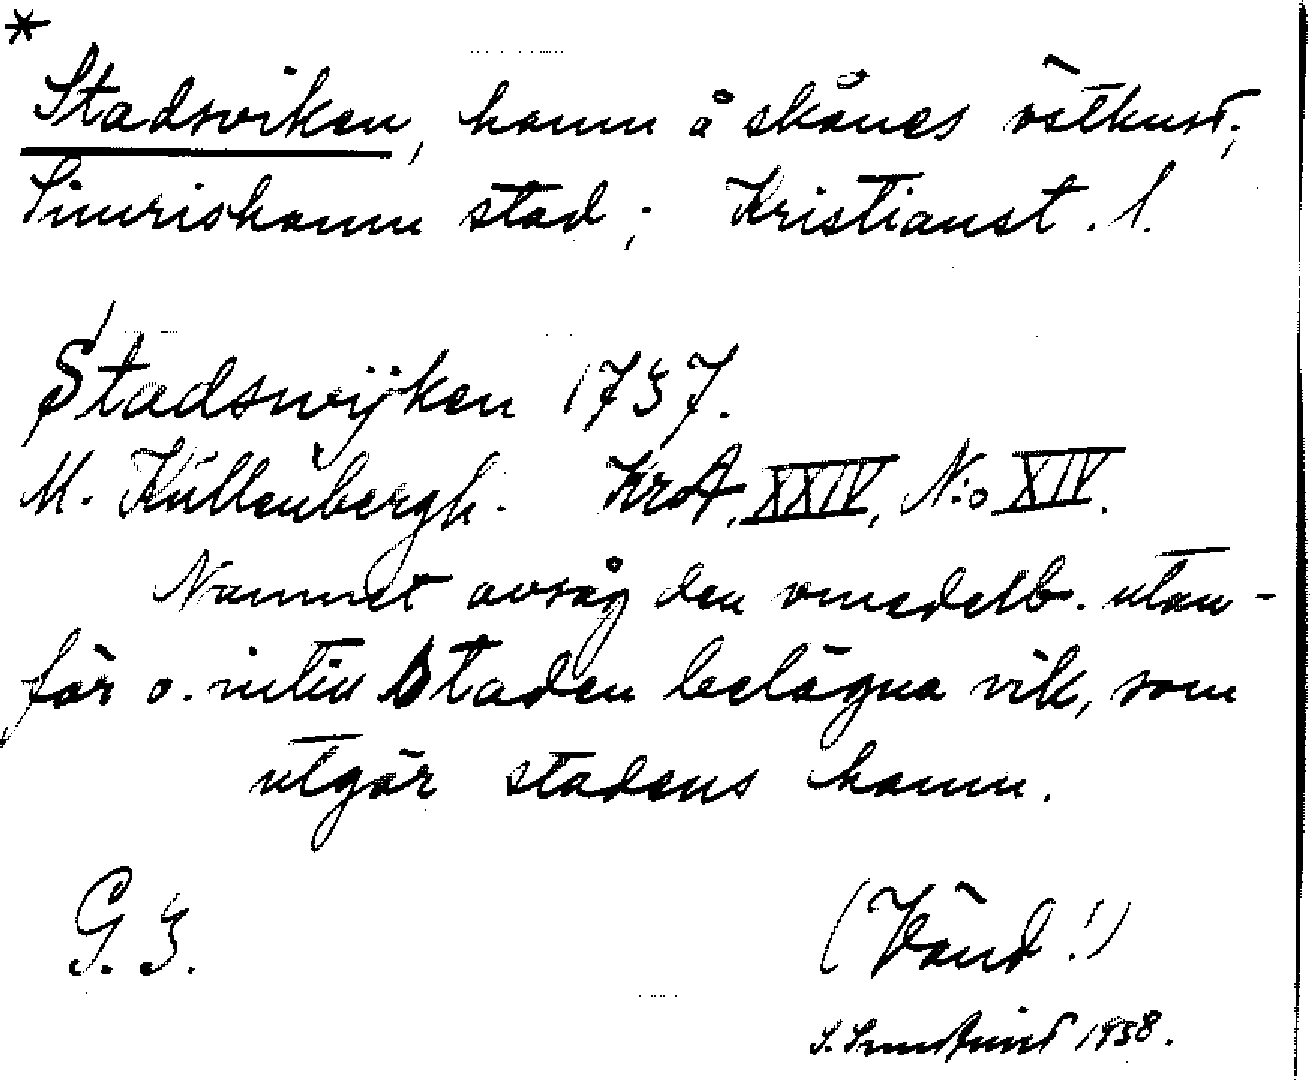 *
Stadsviken, hamn å skånes östkust;
Simrishamn stad; Kristianst. l.
Stadswijken 1737.
M. Kullenbergh. KrA, XXIV, N:o XIV.
Namnet avsåg den omedelb. utan-
för o. intill Staden belägna vik, som
utgör stadens hamn.
G. 3. (Vänd!)
1938.